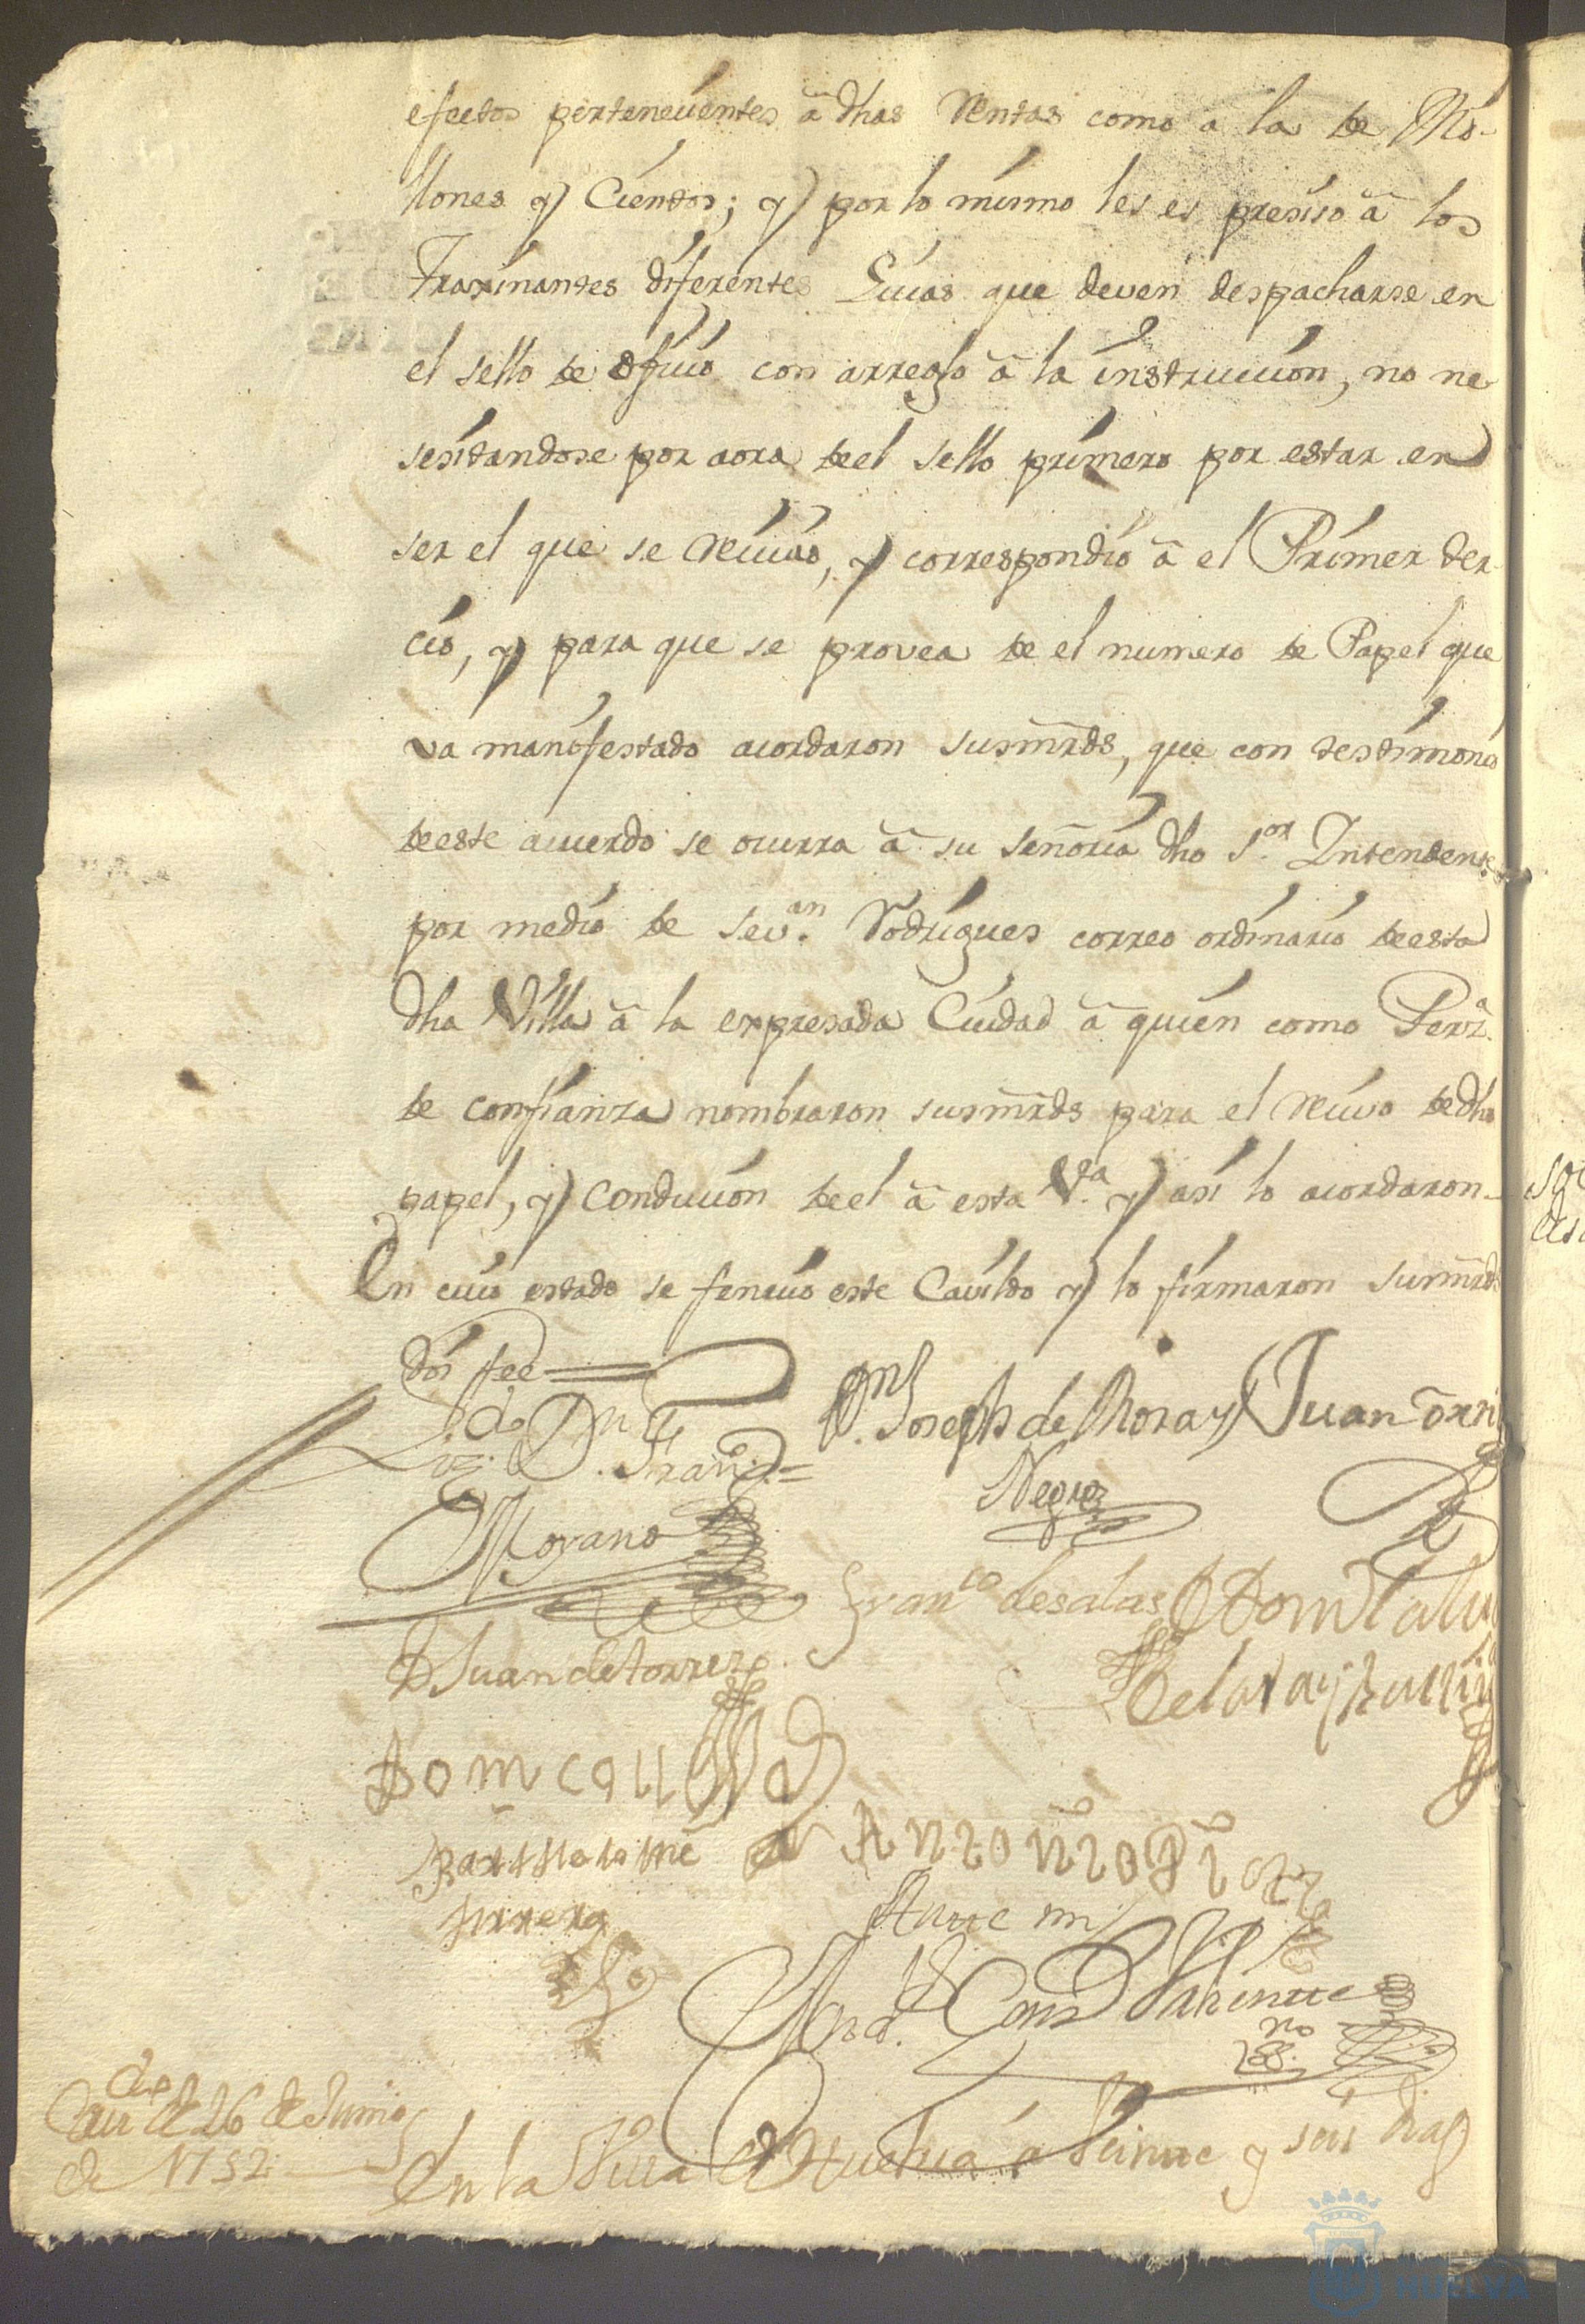 efectos pertenecientes â dhas Rentas como a la de Mi-
llones y Cientos; y por lo mismo les es presiso â los
Traxinantes diferentes Guias que deven despacharse en
el sello de ofício con arreglo â la instrucción, no ne
sesitandose por aora deel sello primero por estar en
ser el que se reciuió, y correspondió â el Primer ter-
cio, y para que se provea de el numero de Papel que
va manifestado acordaron susmrds, que con testimonio
deeste acuerdo se ocurra â su señoria dho Sor. Intendente
por medio de Sevan. Rodrigues correo ordinario deesta
dha Villa â la expresada Ciudad â quien como Perza.
de confianza nombraron susmrds para el recivo dedho
papel, y conducion deel â esta Va. y asi lo acordaron-
En cuio estado se feneció este Cavildo y lo firmaron susmrds
doi fee
Lizdo. Dn. Franco.
Moyano
Dn. Joseph de Mora y
Negro
Juan
Franco desalas
D Juan de torrez
Bartholome
Herrera
Antonio
Ante mi
Valiente
no
Cavdo de 26 de Junio
de 1752
En la Villa de Huelva a veinte y seis dias
HUELVA